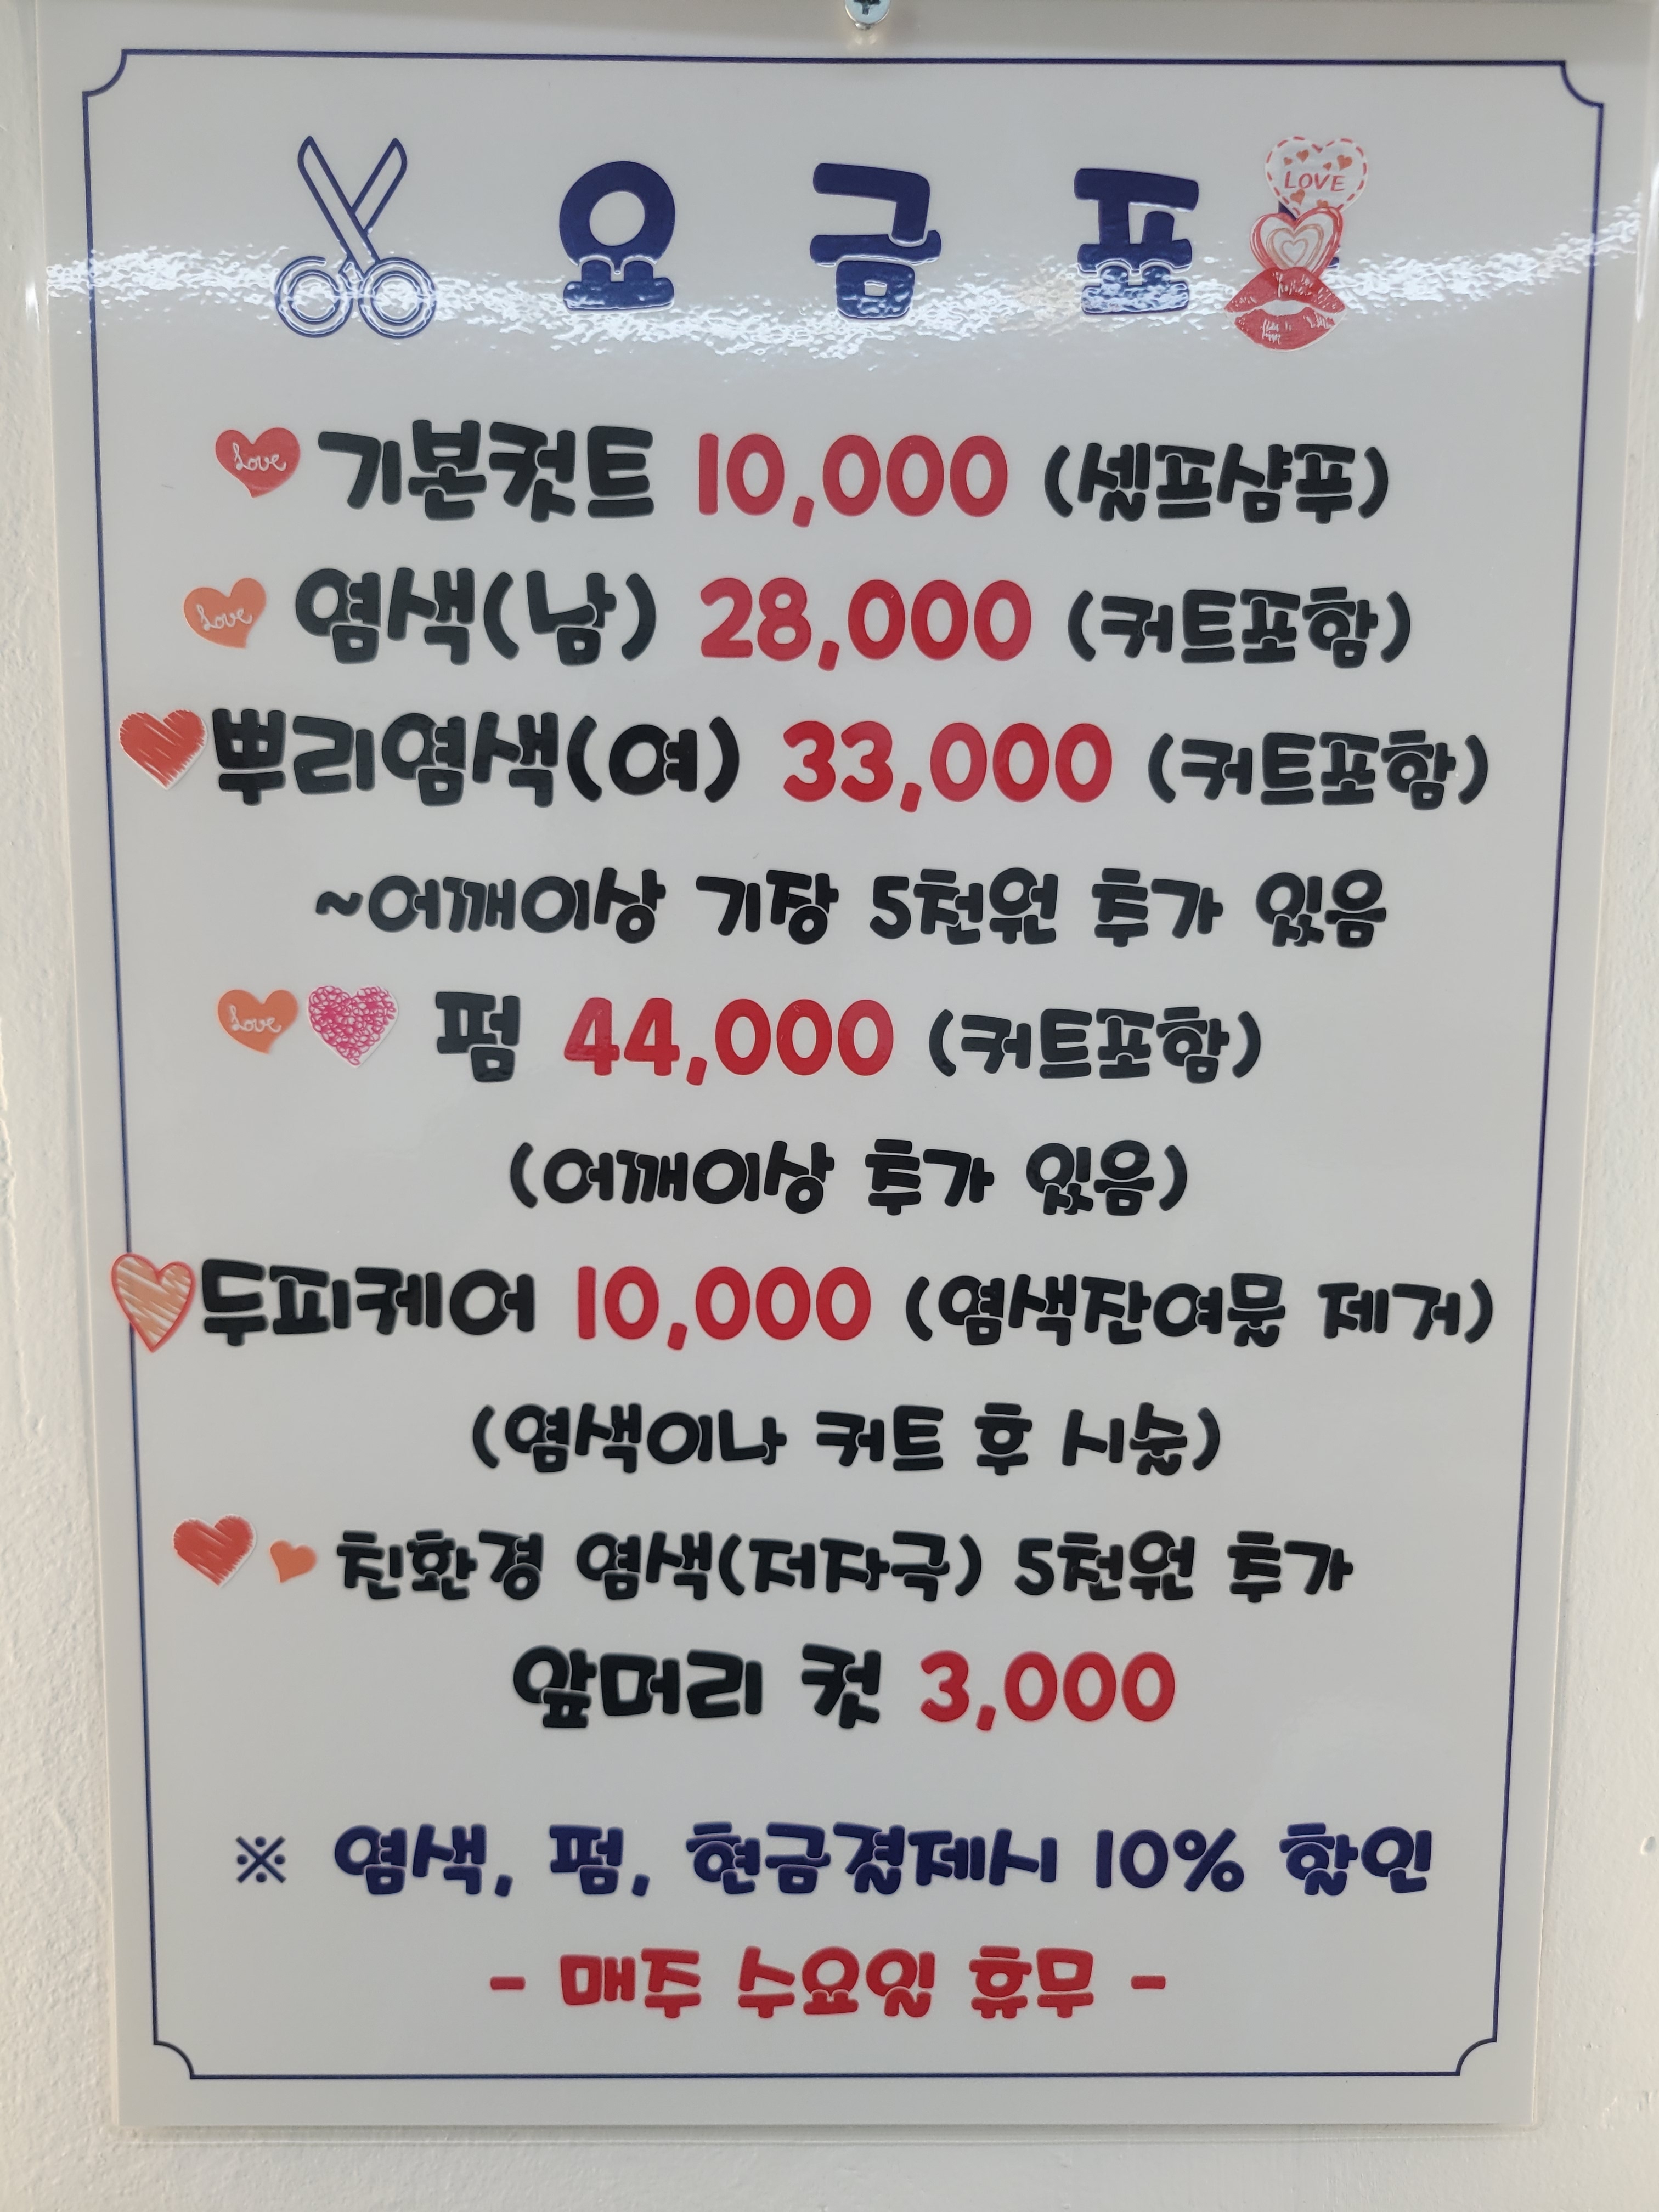 요금표
LOVE
Love 기본컷트 10,000 (셀프샴푸)
Love 염색(남) 28,000 (커트포함)
뿌리염색(여) 33,000 (커트포함)
~어깨이상 기장 5천원 추가 있음
Love 펌 44,000 (커트포함)
(어깨이상 추가 있음)
두피케어 10,000 (염색잔여물 제거)
(염색이나 커트 후 시술)
친환경 염색(저자극) 5천원 추가
앞머리 컷 3,000
※ 염색, 펌, 현금결제시 10% 할인
- 매주 수요일 휴무 -